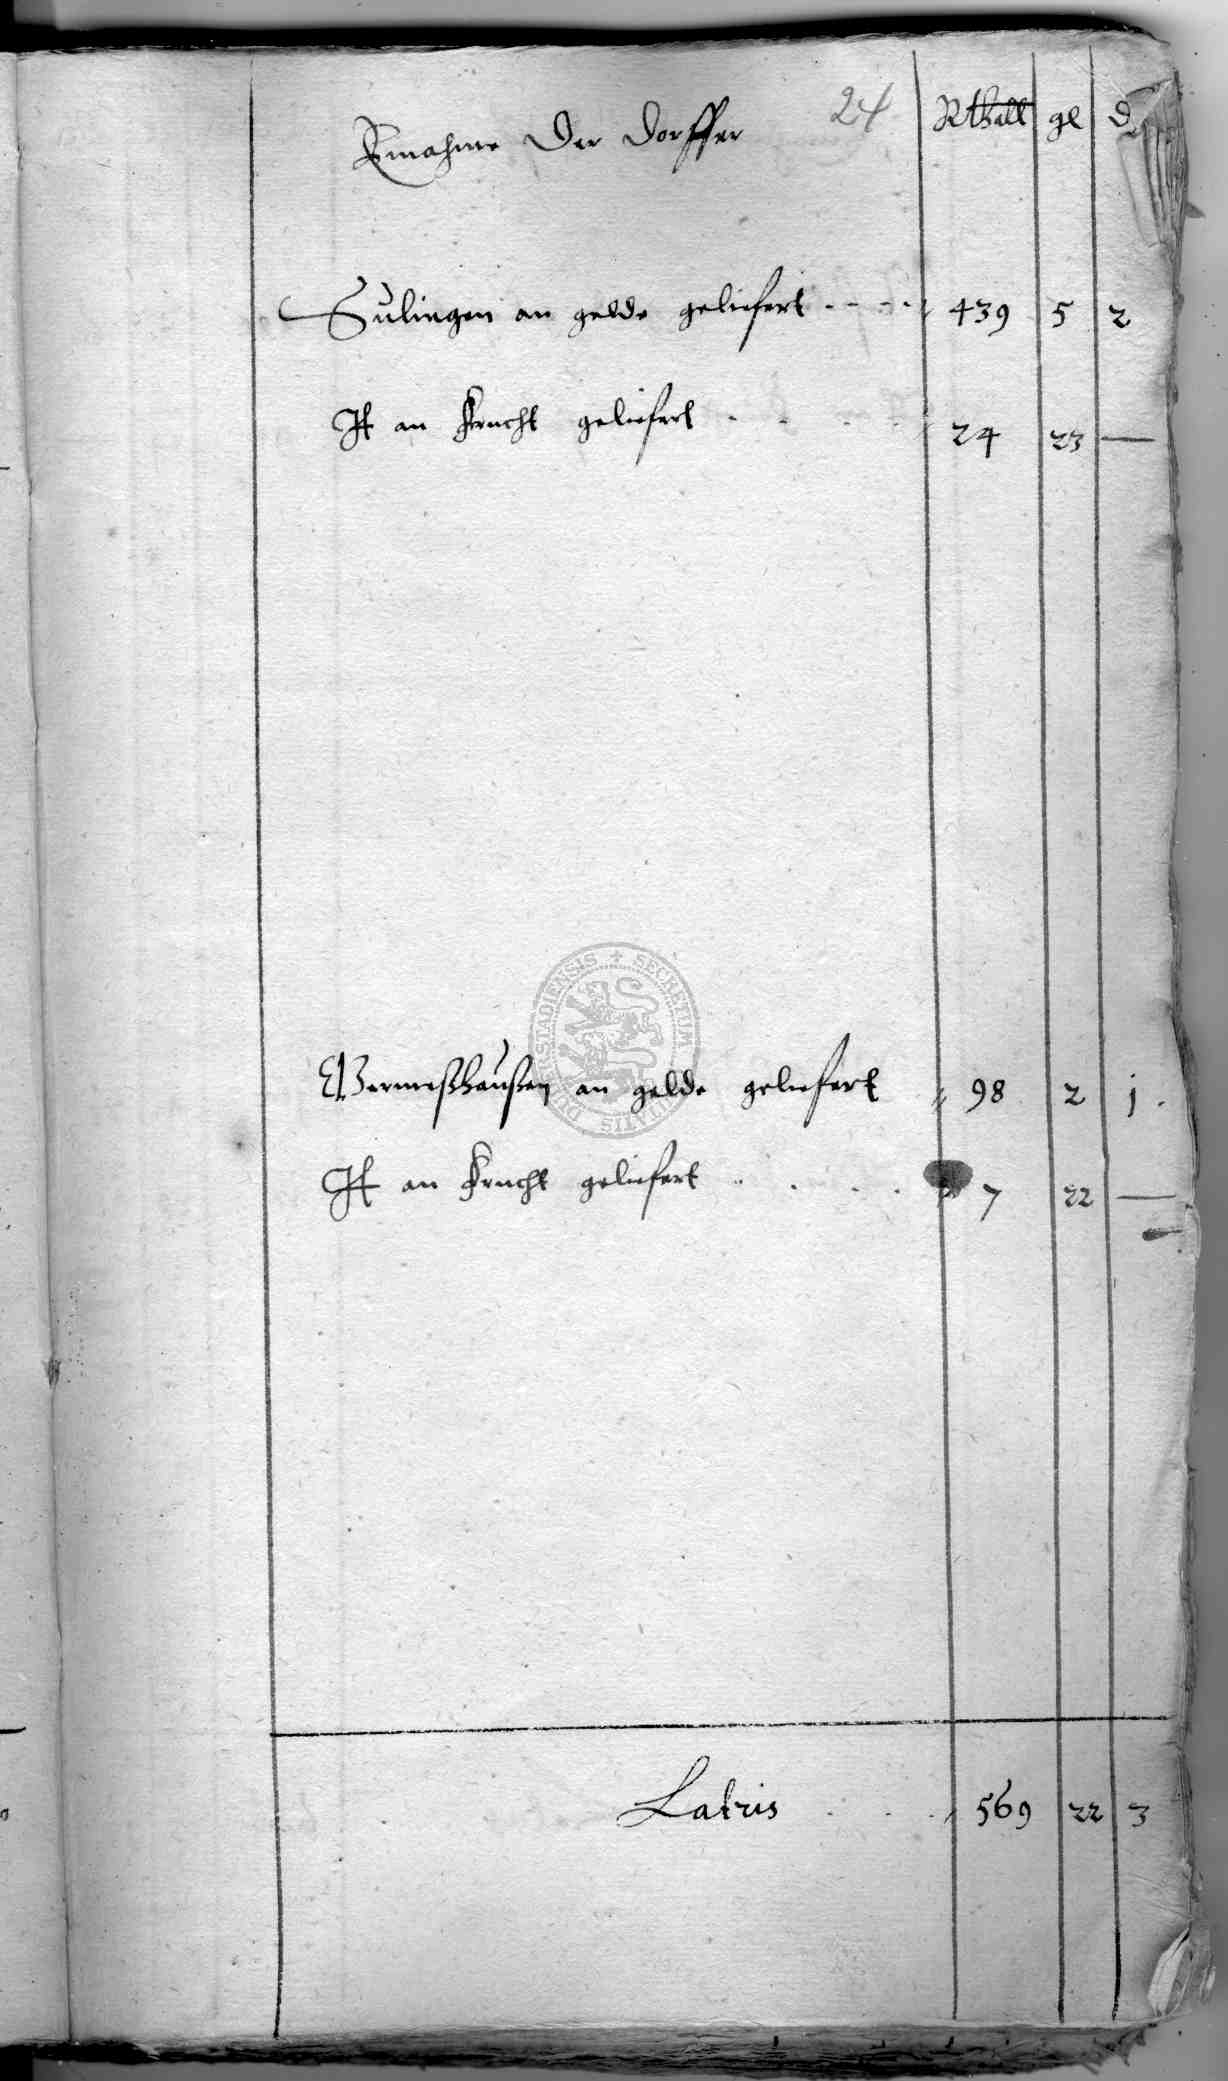 Einahme Der Dorffer 24 Rthall gl d
Sulingen an gelde geliefert 439 5 2
It an Frucht geliefert 24 23 —
Wermeßhaußen an gelde geliefert 98 2 j
It an Frucht geliefert 7 22 —
Latris 569 22 3
SECRETUM